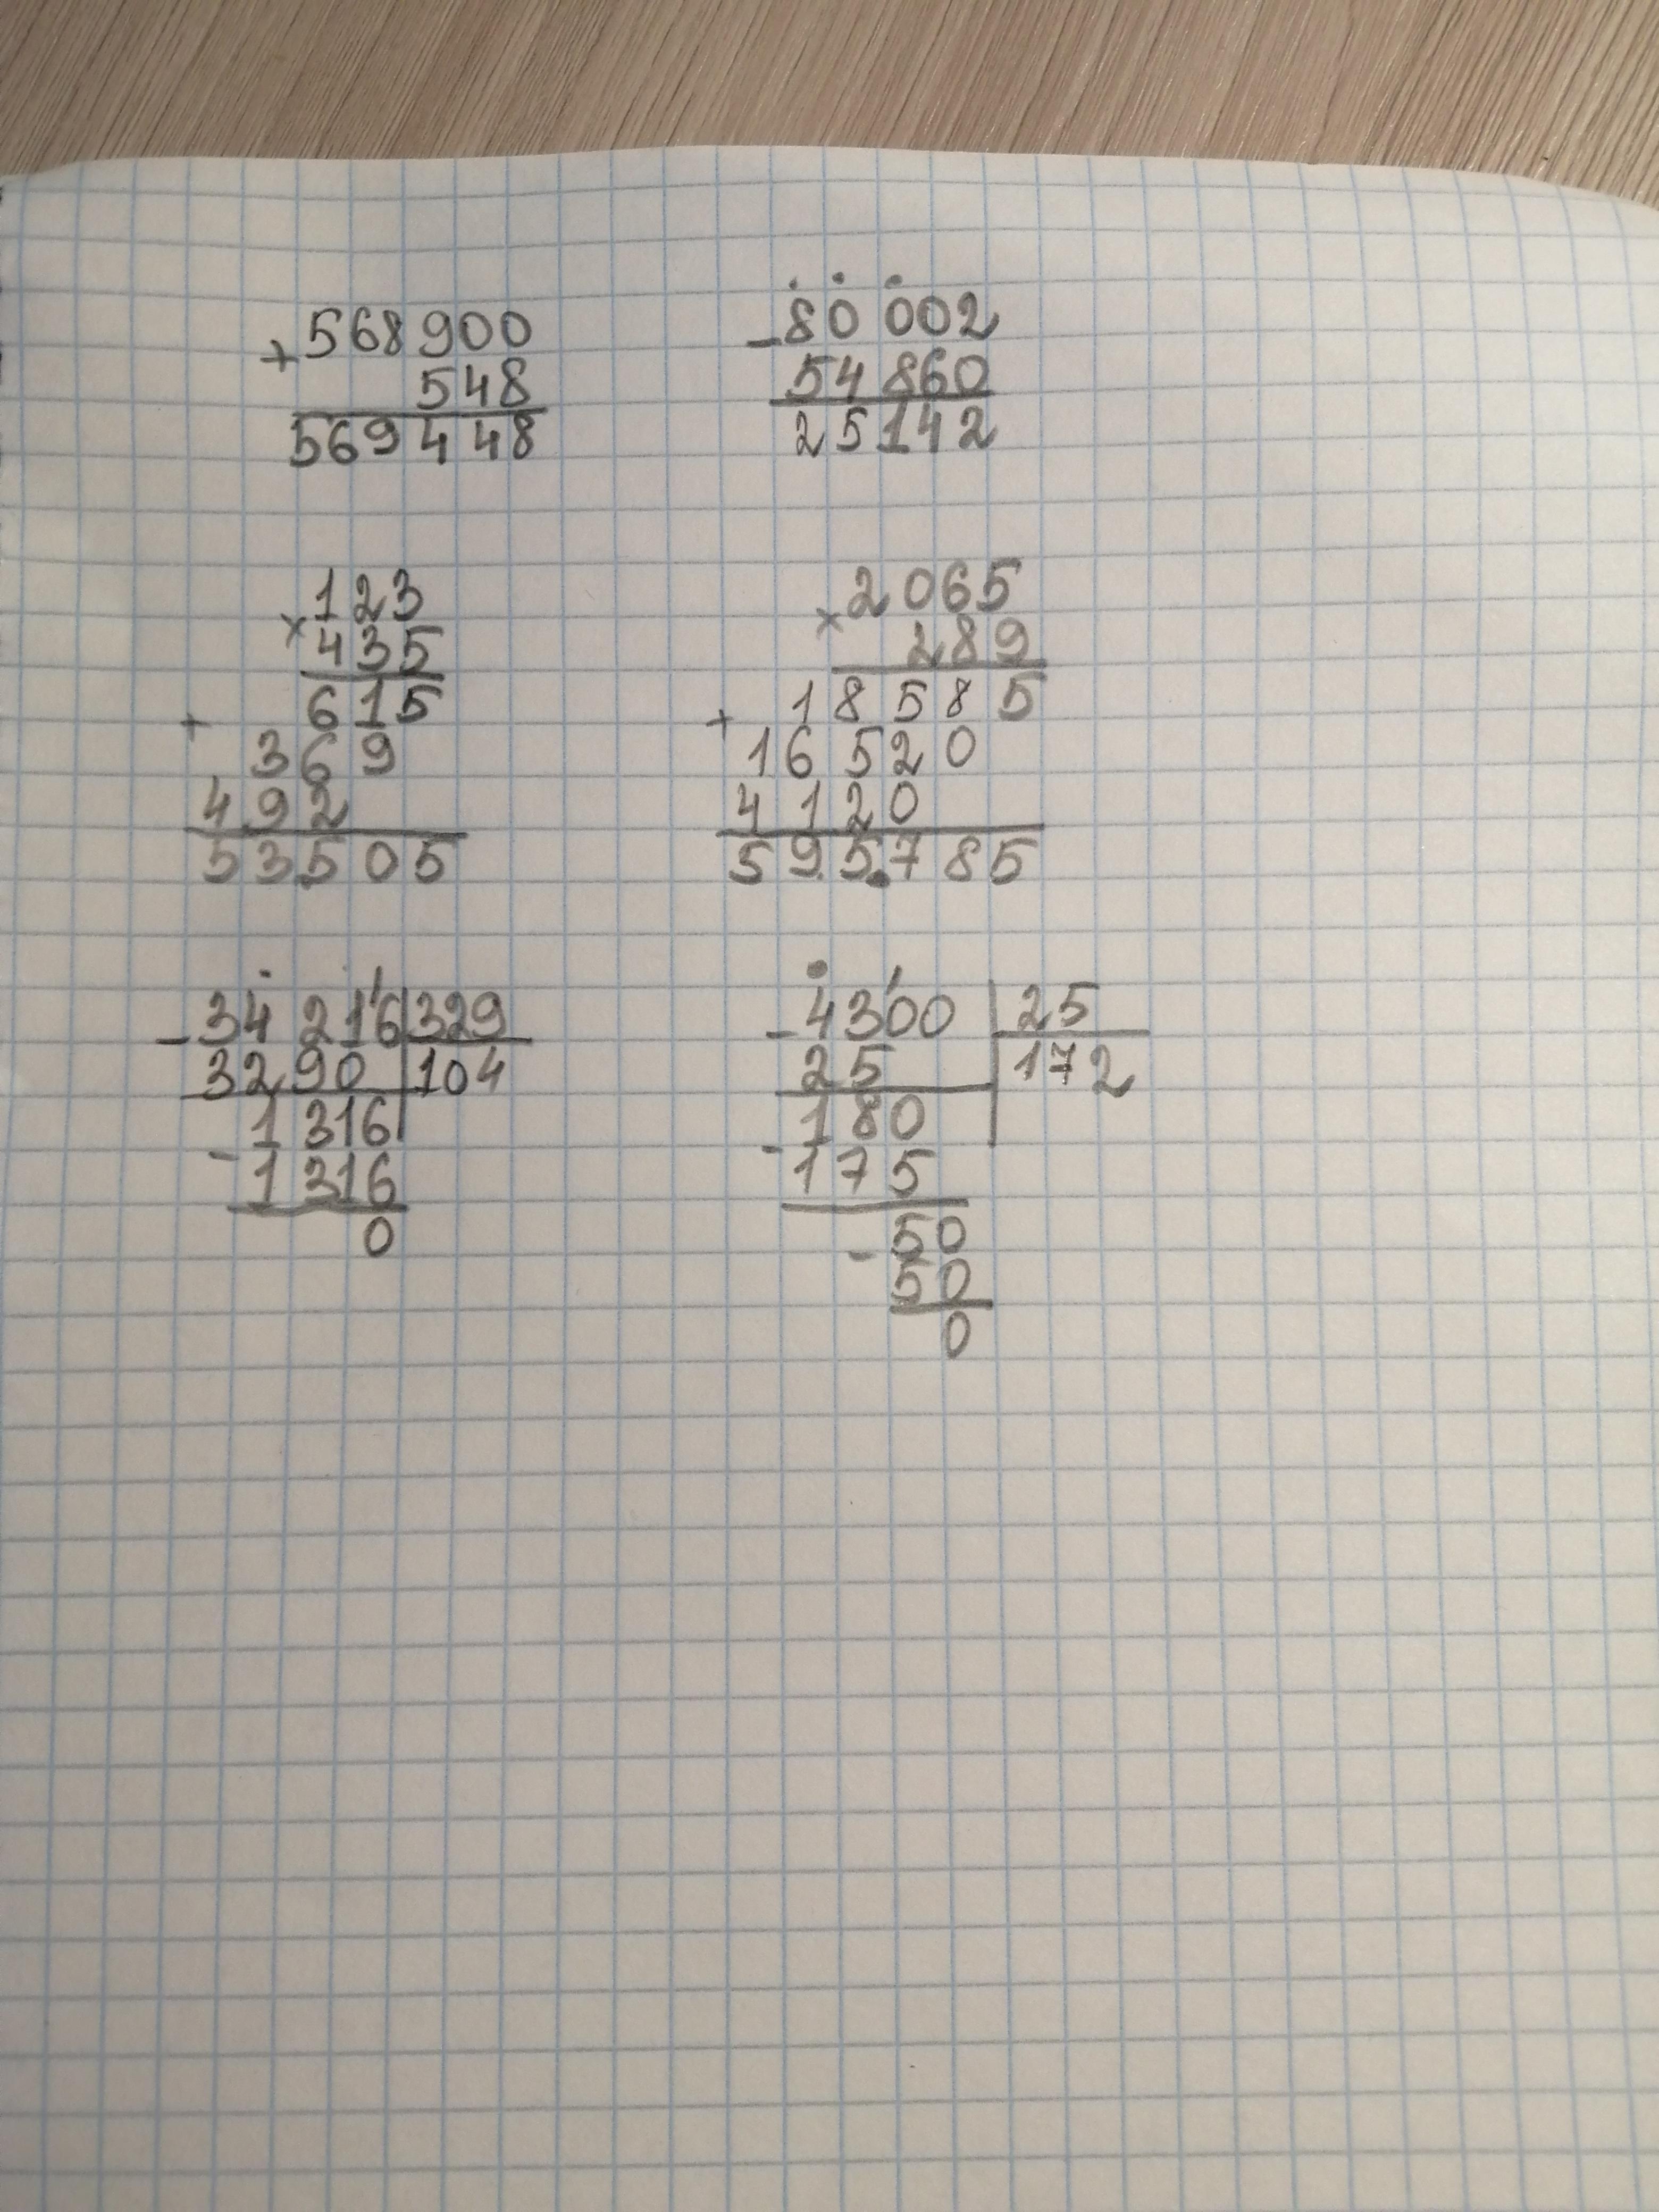 + 568 900
548
569 448
- 80 002
54 860
25 142
× 123
435
615
+ 369
492
53505
× 2065
289
18585
+ 16520
4120
595.785
- 34 216 | 329
3290 | 104
1316
- 1316
0
- 4300 | 25
25 | 172
180
- 175
- 50
50
0